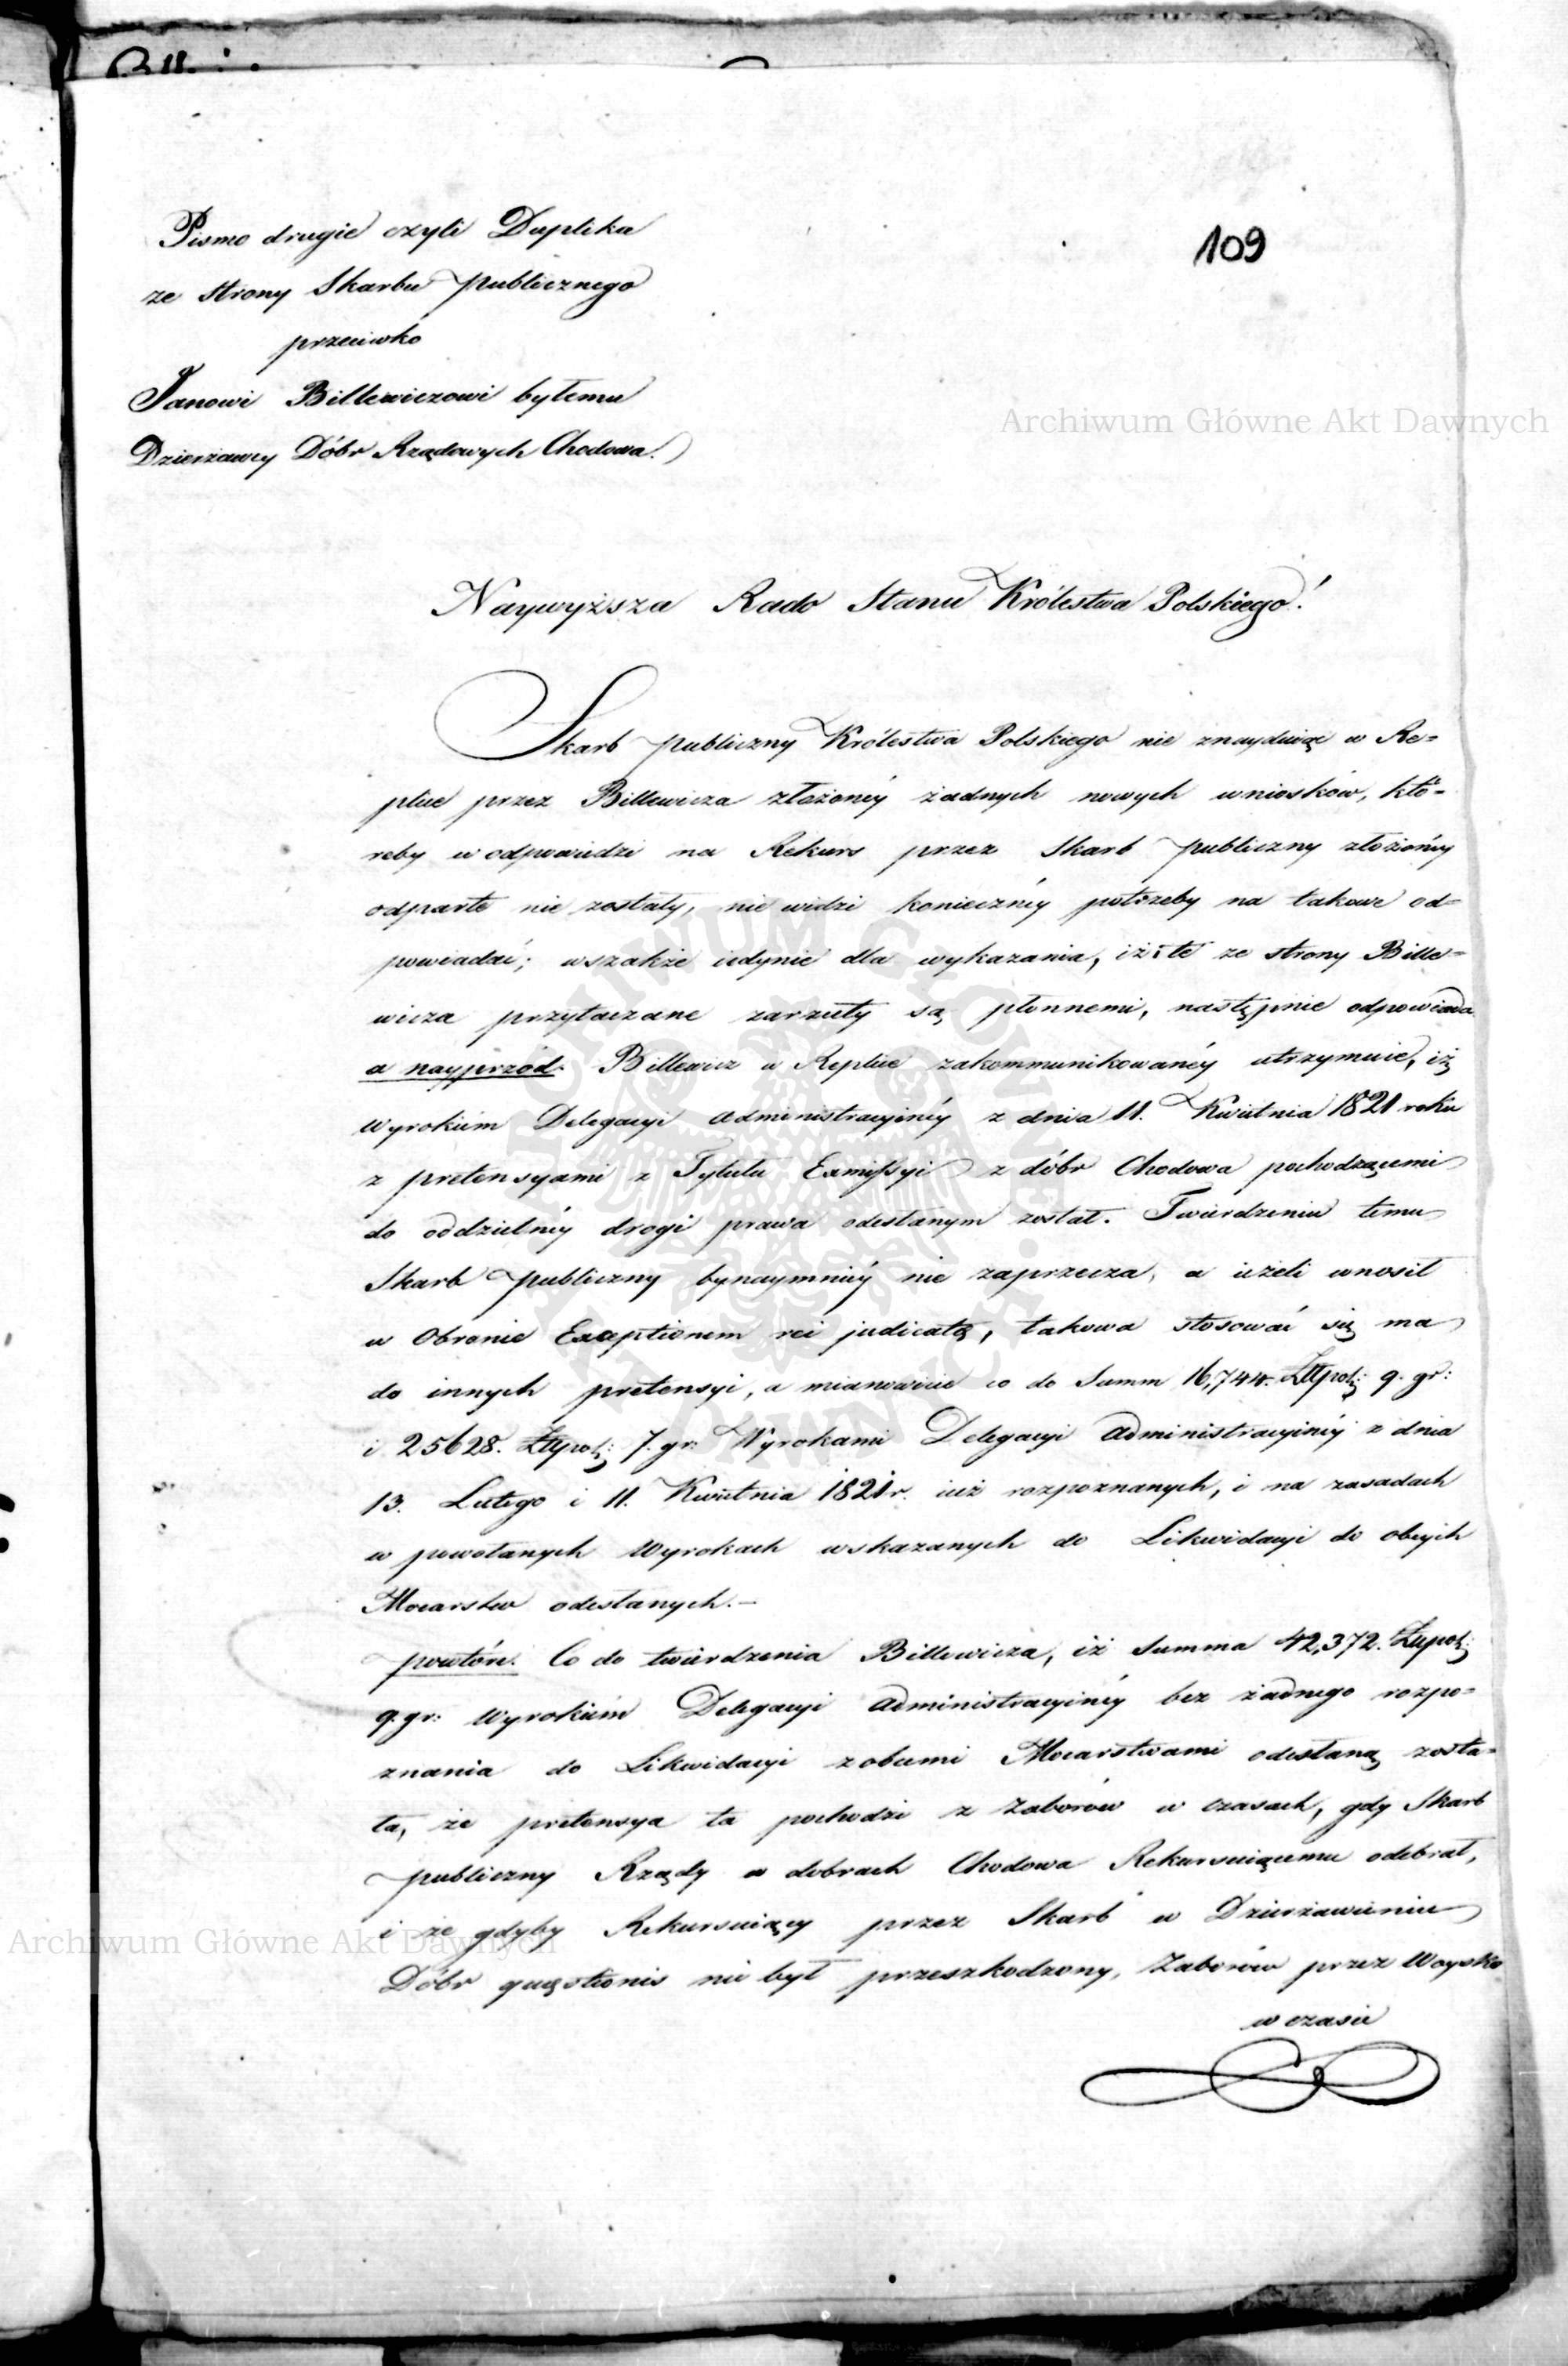 Pismo drugie czyli Duplika
109
ze strony Skarbu publicznego
przeciwko
Janowi Billewiczowi byłemu
Dzierżawcy Dóbr Rządowych Chodowa.
Archiwum Główne Akt Dawnych
Naywyższa Rado Stanu Królestwa Polskiego!
Skarb publiczny Królestwa Polskiego nie znayduiąc w Re=
plice przez Billewicza złożonéy żadnych nowych wniosków, któ=
reby w odpowiedzi na Rekurs przez Skarb publiczny złożonéy
odparte nie zostały, nie widzi koniecznéy potrzeby na takowe od=
powiadać; wszakże iedynie dla wykazania, iż te ze strony Bille=
wicza przytaczane zarzuty są płonnemi, następnie odpowiada
a nayprzód. Billewicz w Replice zakommunikowanéy utrzymuie, iż
Wyrokiem Delegacyi Administracyinéy z dnia 11. Kwietnia 1821 roku
z pretensyami z Tytułu Exmissyi z dóbr Chodowa pochodzącemi
do oddzielnéy drogi prawa odesłanym został. Twierdzeniu temu
Skarb publiczny bynaymniéy nie zaprzecza, a ieżeli wnosił
w Obronie Exceptionem rei judicatę, takowa stosować się ma
do innych pretensyi, a mianowicie co do Summ 16,744. Złłpol: 9. gr:
i 25628. Złłpol: 7. gr: Wyrokami Delegacyi Administracyinéy z dnia
13. Lutego i 11. Kwietnia 1821 r. iuż rozpoznanych, i na zasadach
w powołanych Wyrokach wskazanych do Likwidacyi do obcych
Mocarstw odesłanych.–
powtóre. Co do twierdzenia Billewicza, iż Summa 42,372. Złłpol:
9. gr: Wyrokiem Delegacyi Administracyinéy bez żadnego rozpo=
znania do Likwidacyi z obcemi Mocarstwami odesłaną zosta=
ła, że pretensya ta pochodzi z Zaborów w czasach, gdy Skarb
publiczny Rządy w dobrach Chodowa Rekursuiącemu odebrał,
i że gdyby Rekursuiący przez Skarb w Dzierżawieniu
Archiwum Główne Akt Dawnych
Dóbr quęstionis nie był przeszkodzony, Zaborów przez Woysko
w czasie